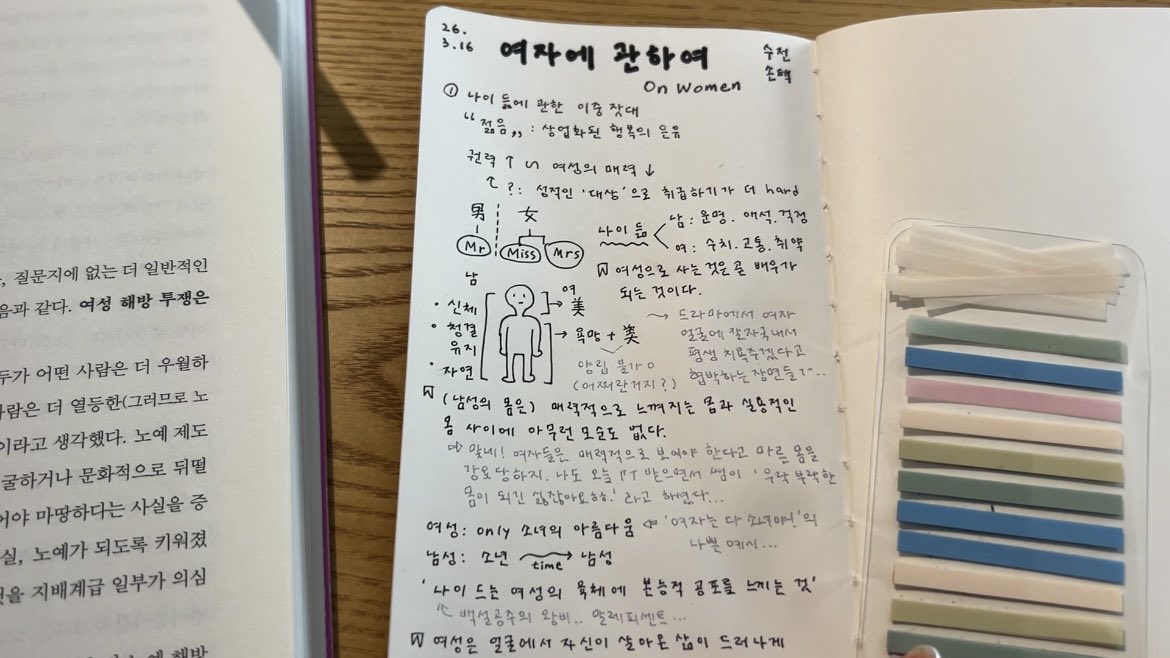 , 질문지에 없는 더 일반적인
음과 같다. 여성 해방 투쟁은
두가 어떤 사람은 더 우월하
사람은 더 열등한(그러므로 노
이라고 생각했다. 노예 제도
굴하거나 문화적으로 뒤떨
어야 마땅하다는 사실을 증
실, 노예가 되도록 키워졌
것을 지배계급 일부가 의심
26.
3.16
여자에 관하여
수전
손택
On Women
① 나이 듦에 관한 이중 잣대
“젊음„ : 상업화된 행복의 은유
권력 ↑ ∽ 여성의 매력 ↓
↑ ?: 성적인 '대상'으로 취급하기가 더 hard
男 女
Mr Miss Mrs
나이 듦 < 남: 운명. 애석. 걱정
여: 수치. 고통. 취약
여성으로 사는 것은 곧 배우가
되는 것이다.
남
• 신체
• 청결
유지
• 자연
여
→ 美
→ 욕망 + 美
양립 불가
(어쩌란거지?)
드라마에서 여자
얼굴에 칼자국내서
평생 치욕주겠다고
협박하는 장면들...
(남성의 몸은) 매력적으로 느껴지는 몸과 실용적인
몸 사이에 아무런 모순도 없다.
⇨ 맞네! 여자들은 매력적으로 보여야 한다고 마른 몸을
강요당하지. 나도 오늘 PT 받으면서 쌤이 '우락부락한
몸이 되긴 싫잖아요하.' 라고 하셨다...
여성: only 소녀의 아름다움 ⇦ '여자는 다 소녀야!'의
나쁜 예시...
남성: 소년 → 남성
time
'나이 드는 여성의 육체에 본능적 공포를 느끼는 것'
백설공주의 왕비.. 말레피센트...
여성은 얼굴에서 자신이 살아온 삶이 드러나게